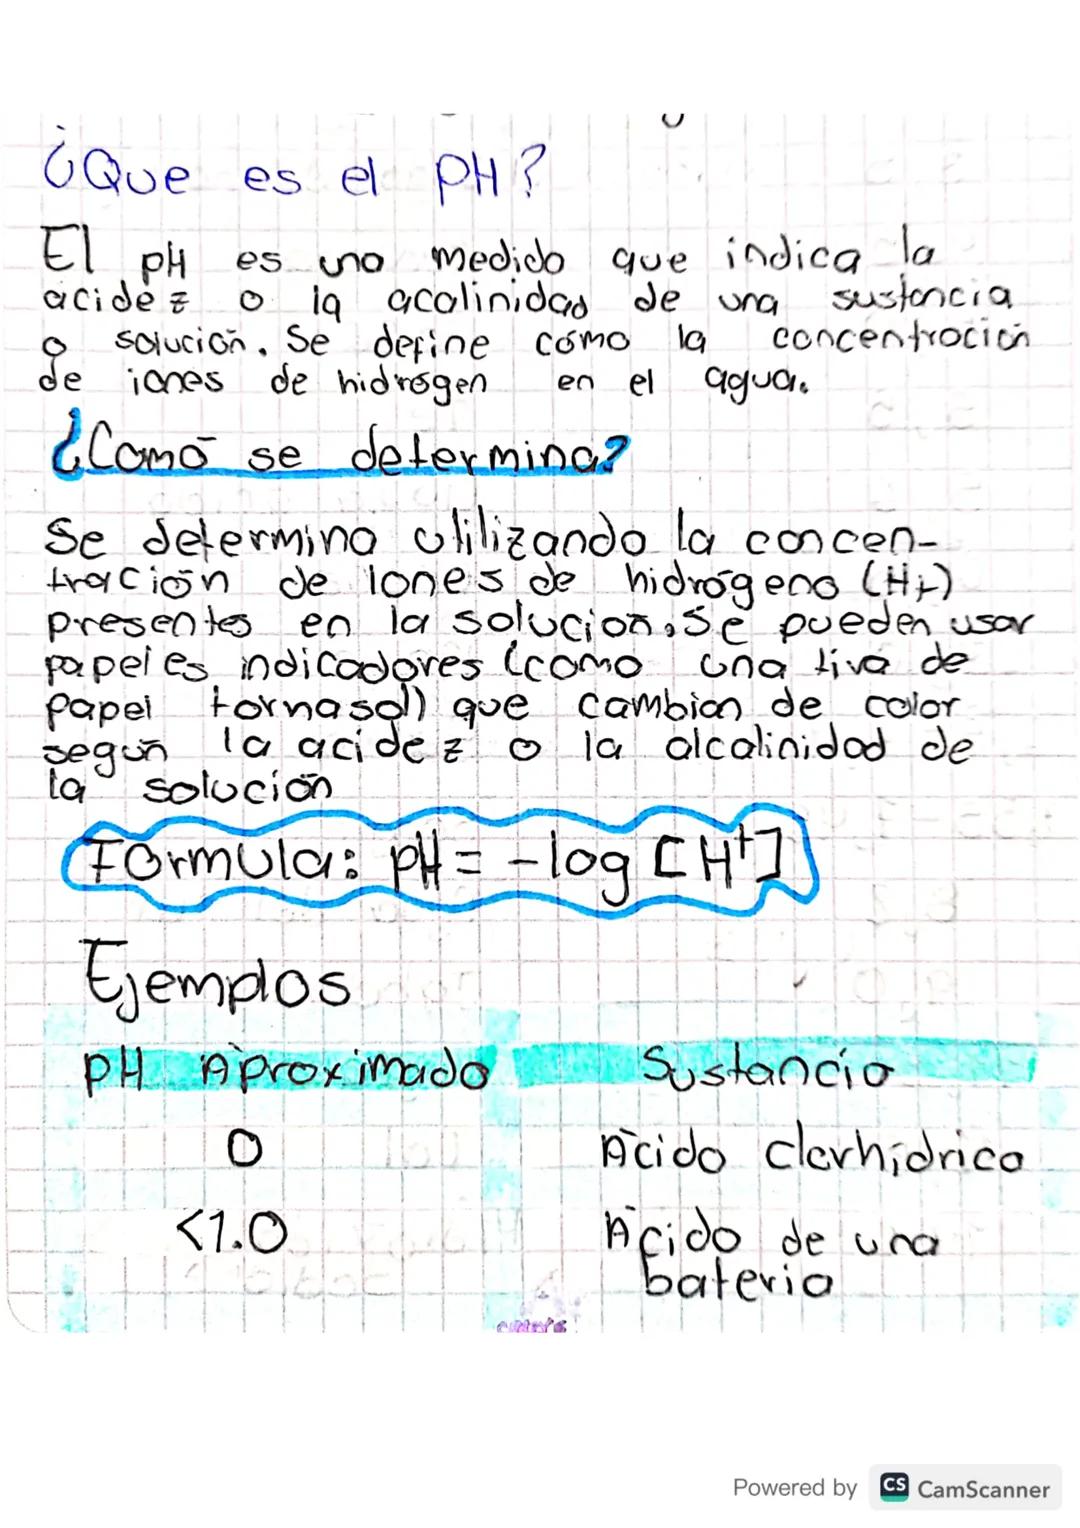 ¿Que es el pH?
El pH es una medida que indica la
acidez o la acalinidad de una sustancia
o solución. Se define cómo la concentración
de iones de hidrógen en el agua.
¿Comó se determina?
Se determina utilizando la concen-
tración de Iones de hidrógeno (H+)
presentes en la solución. Se pueden usar
papeles indicadores (como una tiva de
papel tornasol) que cambian de color
según la acidez o la alcalinidad de
la solución
Fórmula: pH = -log [H+]
Ejemplos
pH Aproximado Sustancia
0 Ácido clorhídrico
<1.0 Ácido de una
batería
Powered by CS CamScanner